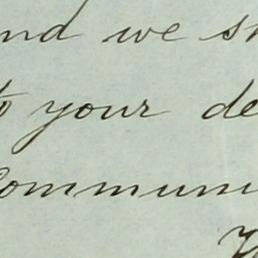 nd we s
to your de
Communi